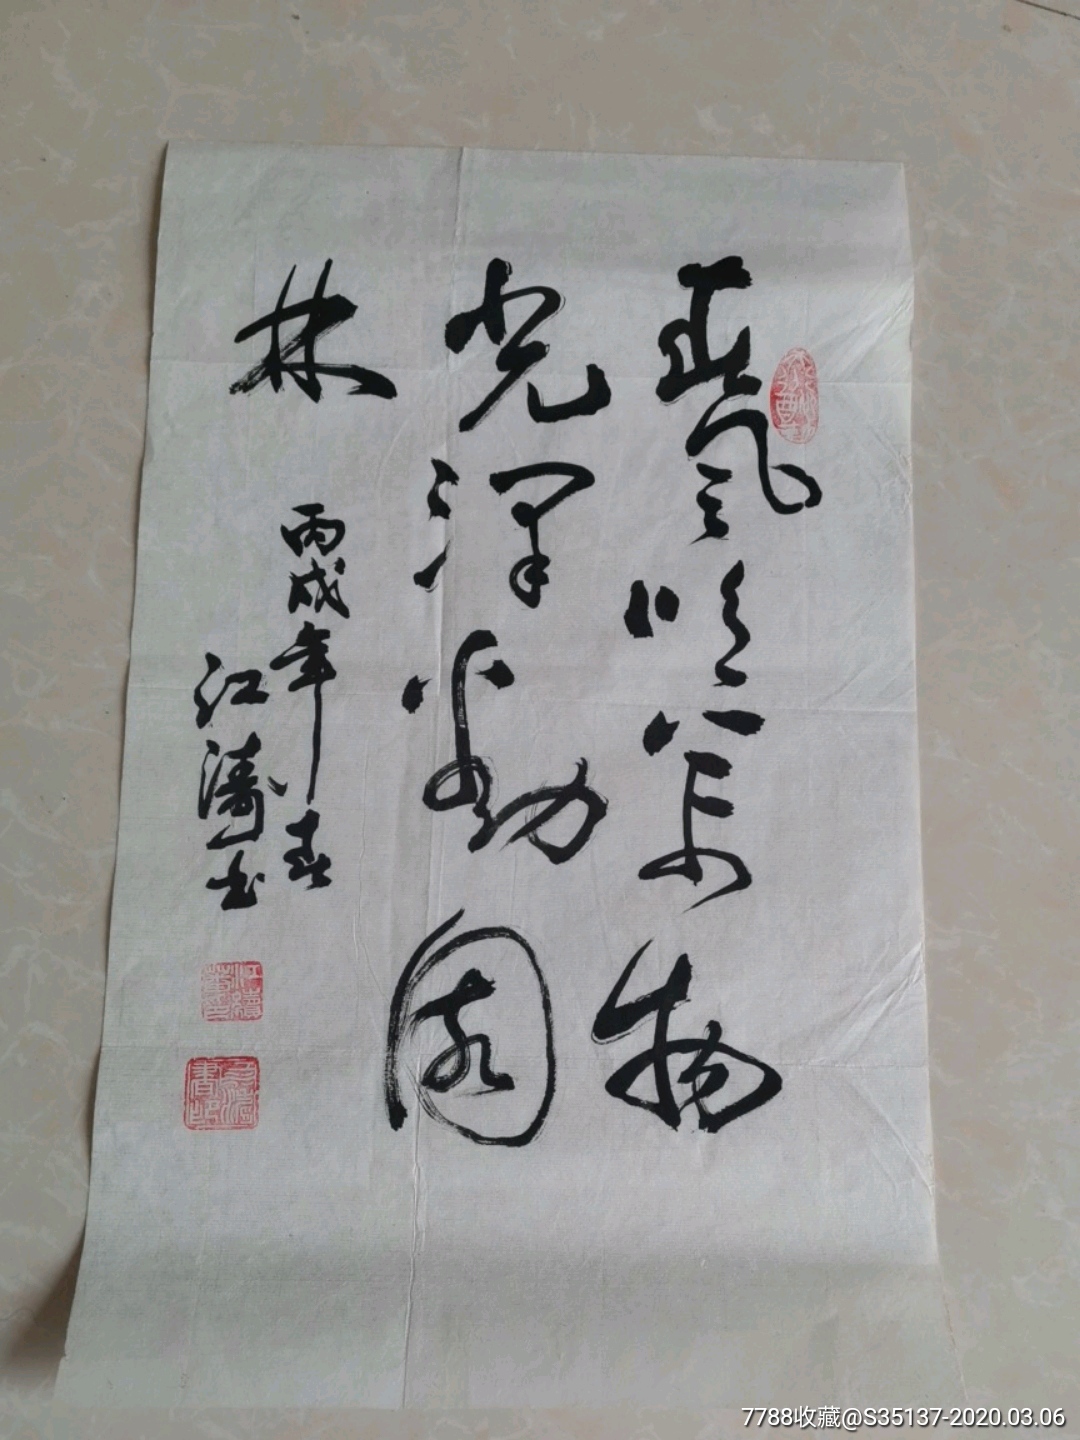 春风物
光泽动园
林
丙戌年春
江涛书
7788收藏@S35137-2020.03.06